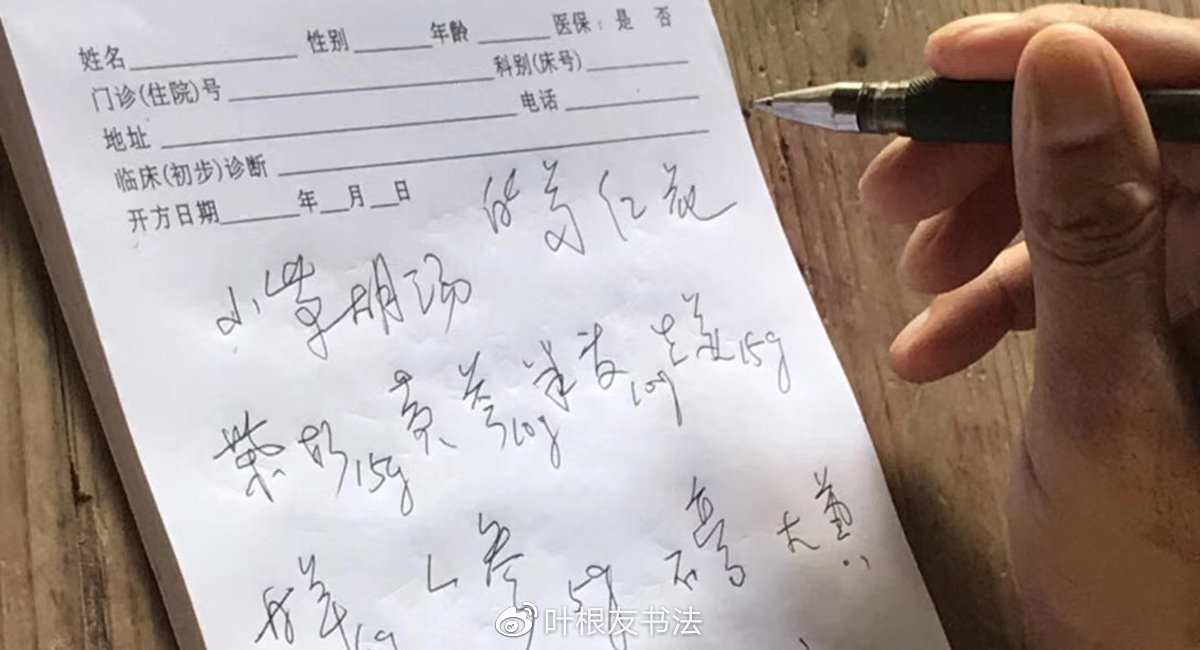 姓名 性别 年龄 医保：是 否
门诊(住院)号 科别(床号)
地址 电话
临床(初步)诊断
开方日期 年 月 日
红花
小柴胡汤
柴胡15g 黄芩10g 半夏10g 生姜15g
人参 5g 石膏 大黄
叶根友书法